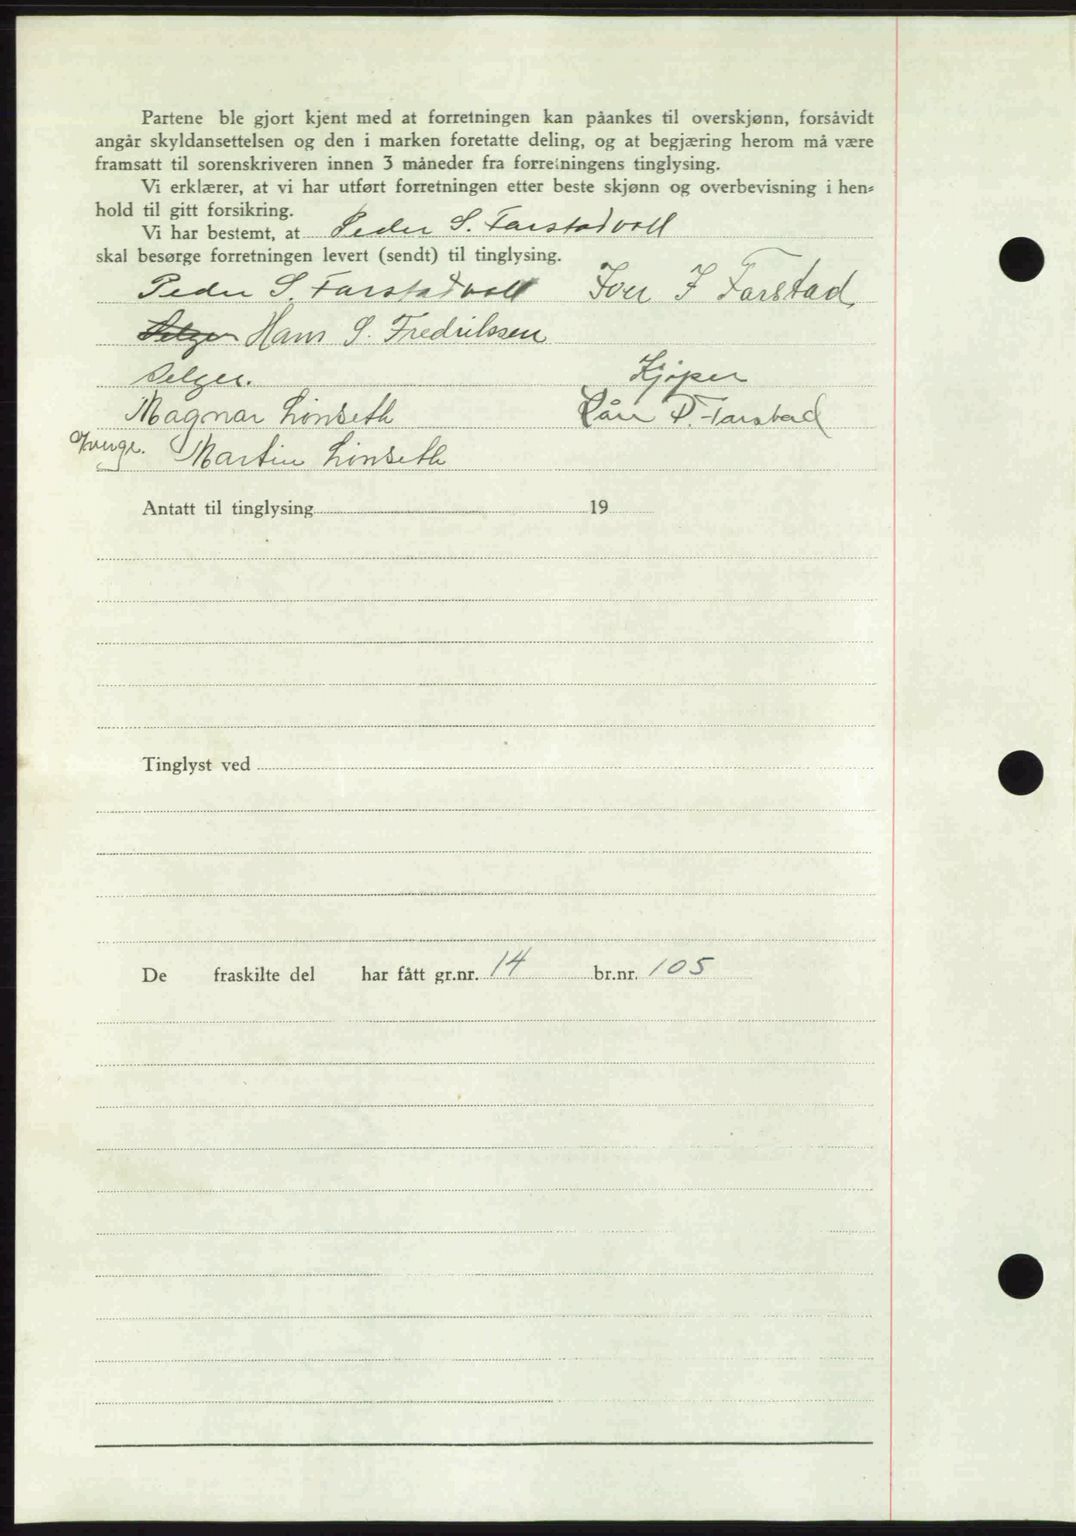 Partene ble gjort kjent med at forretningen kan påankes til overskjønn, forsåvidt
angår skyldansettelsen og den i marken foretatte deling, og at begjæring herom må være
framsatt til sorenskriveren innen 3 måneder fra forretningens tinglysing.
Vi erklærer, at vi har utført forretningen etter beste skjønn og overbevisning i hen-
hold til gitt forsikring.
Vi har bestemt, at Peder S. Farstadvoll
skal besørge forretningen levert (sendt) til tinglysing.
Peder S. Farstadvoll Iver I Farstad
Selger Hans S. Fredriksen
Selger. Kjøper
Magnar Linseth Kåre P. Farstad
Martin Linseth
Antatt til tinglysing 19
Tinglyst ved
De fraskilte del har fått gr.nr. 14 br.nr. 105